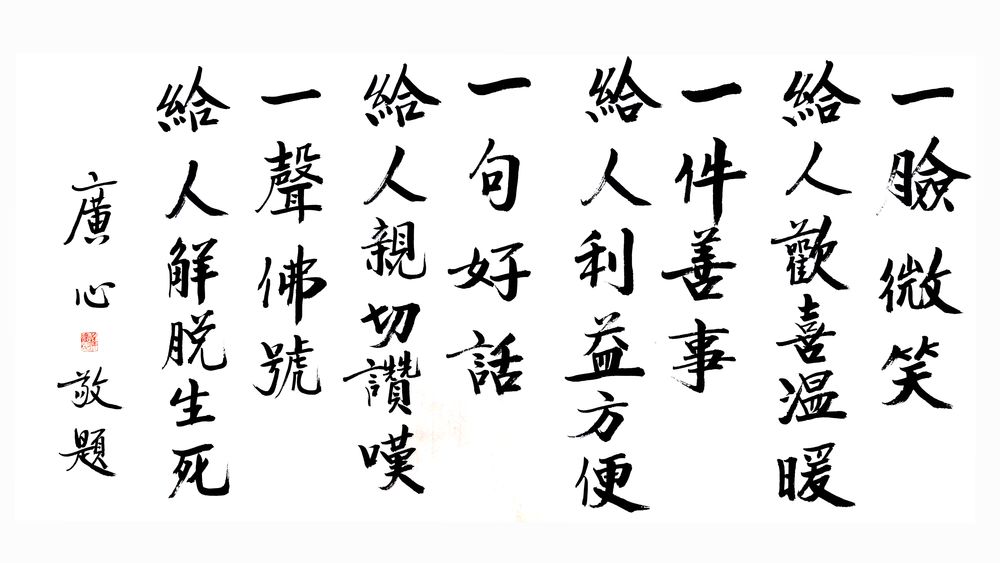 一臉微笑
給人歡喜溫暖
一件善事
給人利益方便
一句好話
給人親切讚嘆
一聲佛號
給人解脫生死
廣心敬題